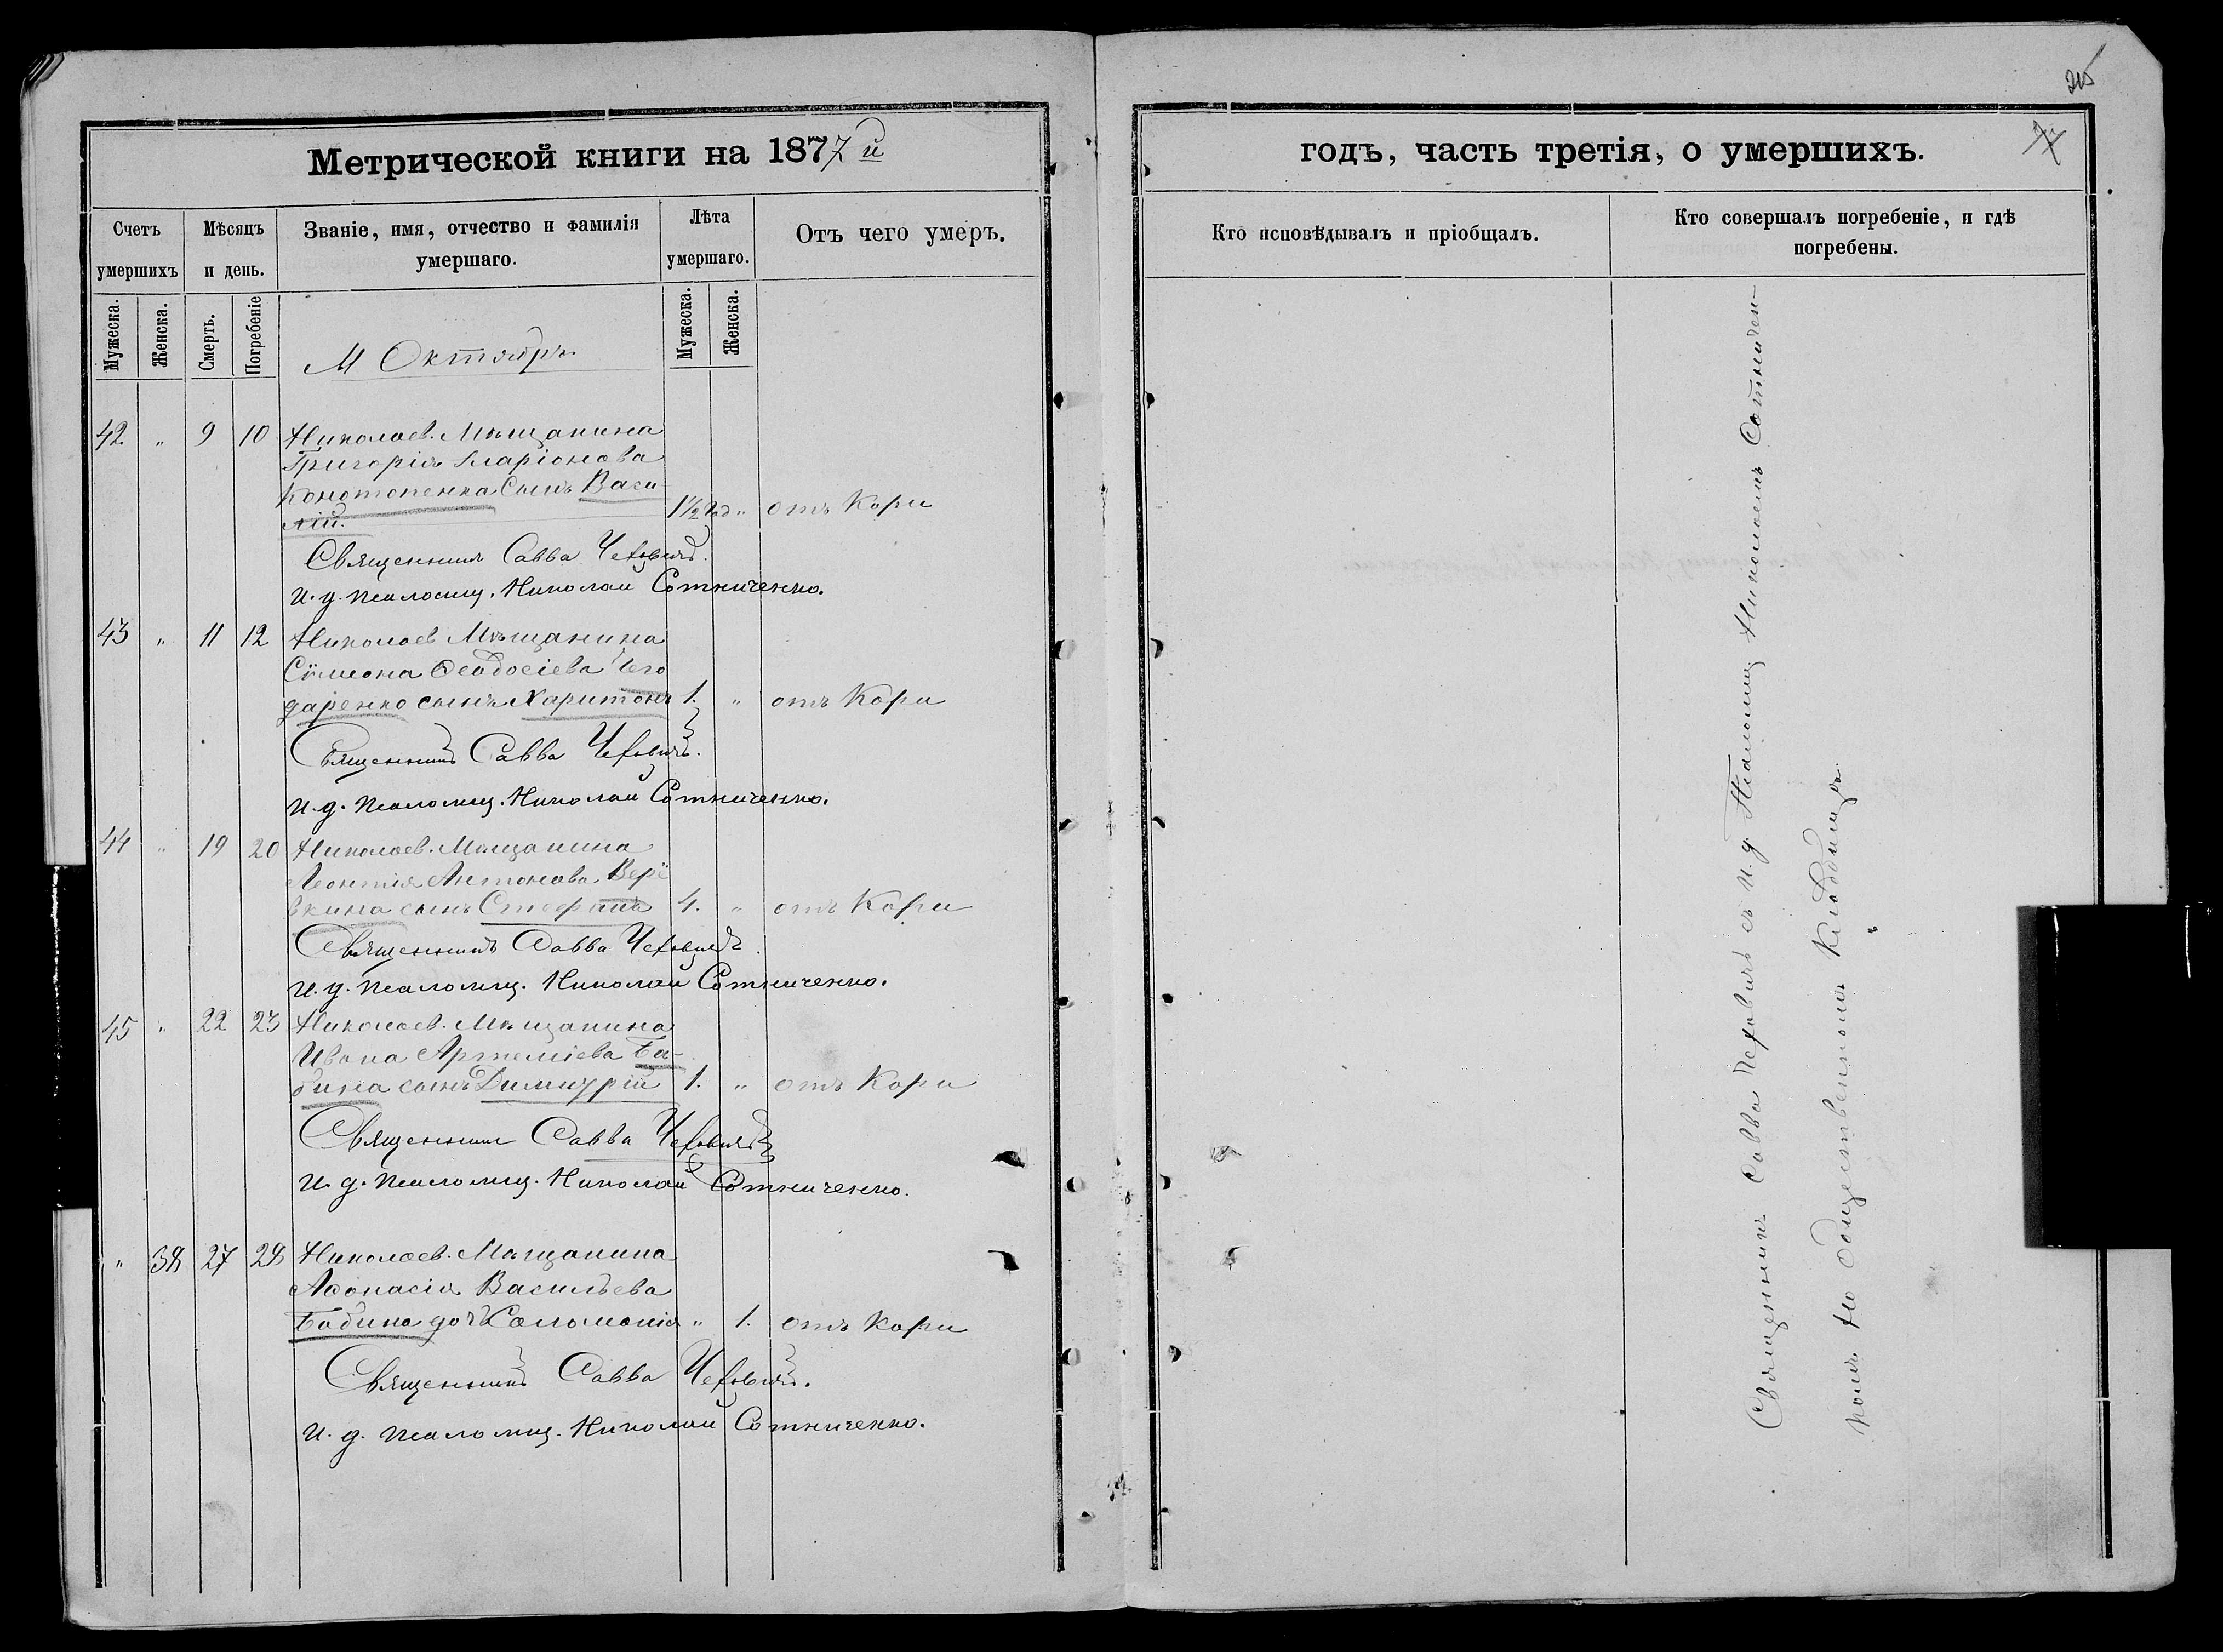 Метрической книги на 1877й
Счетъ умершихъ
Мѣсяцъ и день.
Званіе, имя, отчество и фамилія умершаго.
Лѣта умершаго.
Отъ чего умеръ.
Мужеска.
Женска.
Смерть.
Погребеніе
Мужеска.
Женска.
М Октябрь
42 „ 9 10 Николаев. Мѣщанина
Григорія Иларіонова
Конотопенка сынъ Васи-
лій. 1½ год „ отъ Кори
Священникъ Савва Чеховичъ.
И. д. псаломщ. Николай Сотниченко.
43 „ 11 12 Николаев Мѣщанина
Сѵмеона Ѳеодосіева Чего
даренко сынъ Харитонъ 1. „ отъ Кори
Священникъ Савва Чеховичъ.
И. д. псаломщ. Николай Сотниченко.
44 „ 19 20 Николаев. Мѣщанина
Леонтія Антонова Верё
вкина сынъ Стефанъ 4. „ отъ Кори
Священникъ Савва Чеховичъ.
И. д. псаломщ. Николай Сотниченко.
45 „ 22 23 Николаев. Мѣщанина
Ивана Артеміева Ба-
бина сынъ Димитрій 1. „ отъ Кори
Священникъ Савва Чеховичъ
И. д. псаломщ. Николай Сотниченко.
„ 38 27 28 Николаев. Мѣщанина
Аѳонасія Васильева
Бабина дочь Соломонія „ 1. отъ Кори
Священникъ Савва Чеховичъ.
И. д. псаломщ. Николай Сотниченко.
годъ, часть третія, о умершихъ.
Кто исповѣдывалъ и пріобщалъ.
Кто совершалъ погребеніе, и гдѣ
погребены.
Священникъ Савва Чеховичъ съ и. д. Псаломщ Николаемъ Сотничен-
комъ на общественномъ кладбищѣ.